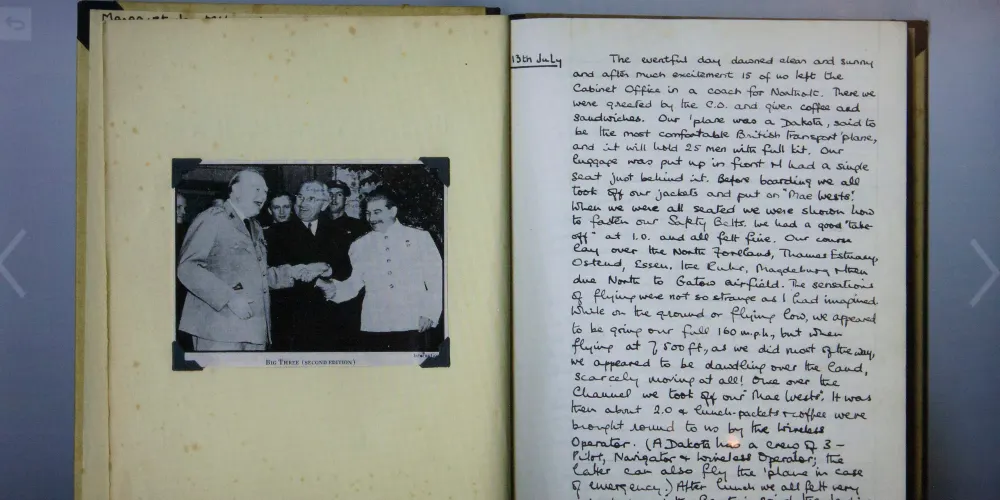 BIG THREE (SECOND EDITION)
13th July
The eventful day dawned clear and sunny
and after much excitement 15 of us left the
Cabinet Office in a coach for Northolt. There we
were greeted by the C.O. and given coffee and
sandwiches. Our 'plane was a Dakota, said to
be the most comfortable British Transport 'plane,
and it will hold 25 men with full kit. Our
luggage was put up in front & I had a single
seat just behind it. Before boarding we all
took off our jackets and put on "Mae Wests".
When we were all seated we were shown how
to fasten our Safety Belts. We had a good "take-
off" at 1.0. and all felt fine. Our course
lay over the North Foreland, Thames Estuary,
Ostend, Essen, the Ruhr, Magdeburg & then
due North to Gatow airfield. The sensations
of flying were not so strange as I had imagined.
While on the ground or flying low, we appeared
to be going our full 160 m.p.h., but when
flying at 7,500 ft., as we did most of the way,
we appeared to be dawdling over the land,
scarcely moving at all! Once over the
Channel we took off our "Mae Wests". It was
then about 2.0 & lunch-packets & coffee were
brought round to us by the Wireless
Operator. (A Dakota has a crew of 3 –
Pilot, Navigator & Wireless Operator; the
latter can also fly the 'plane in case
of emergency.) After lunch we all felt very